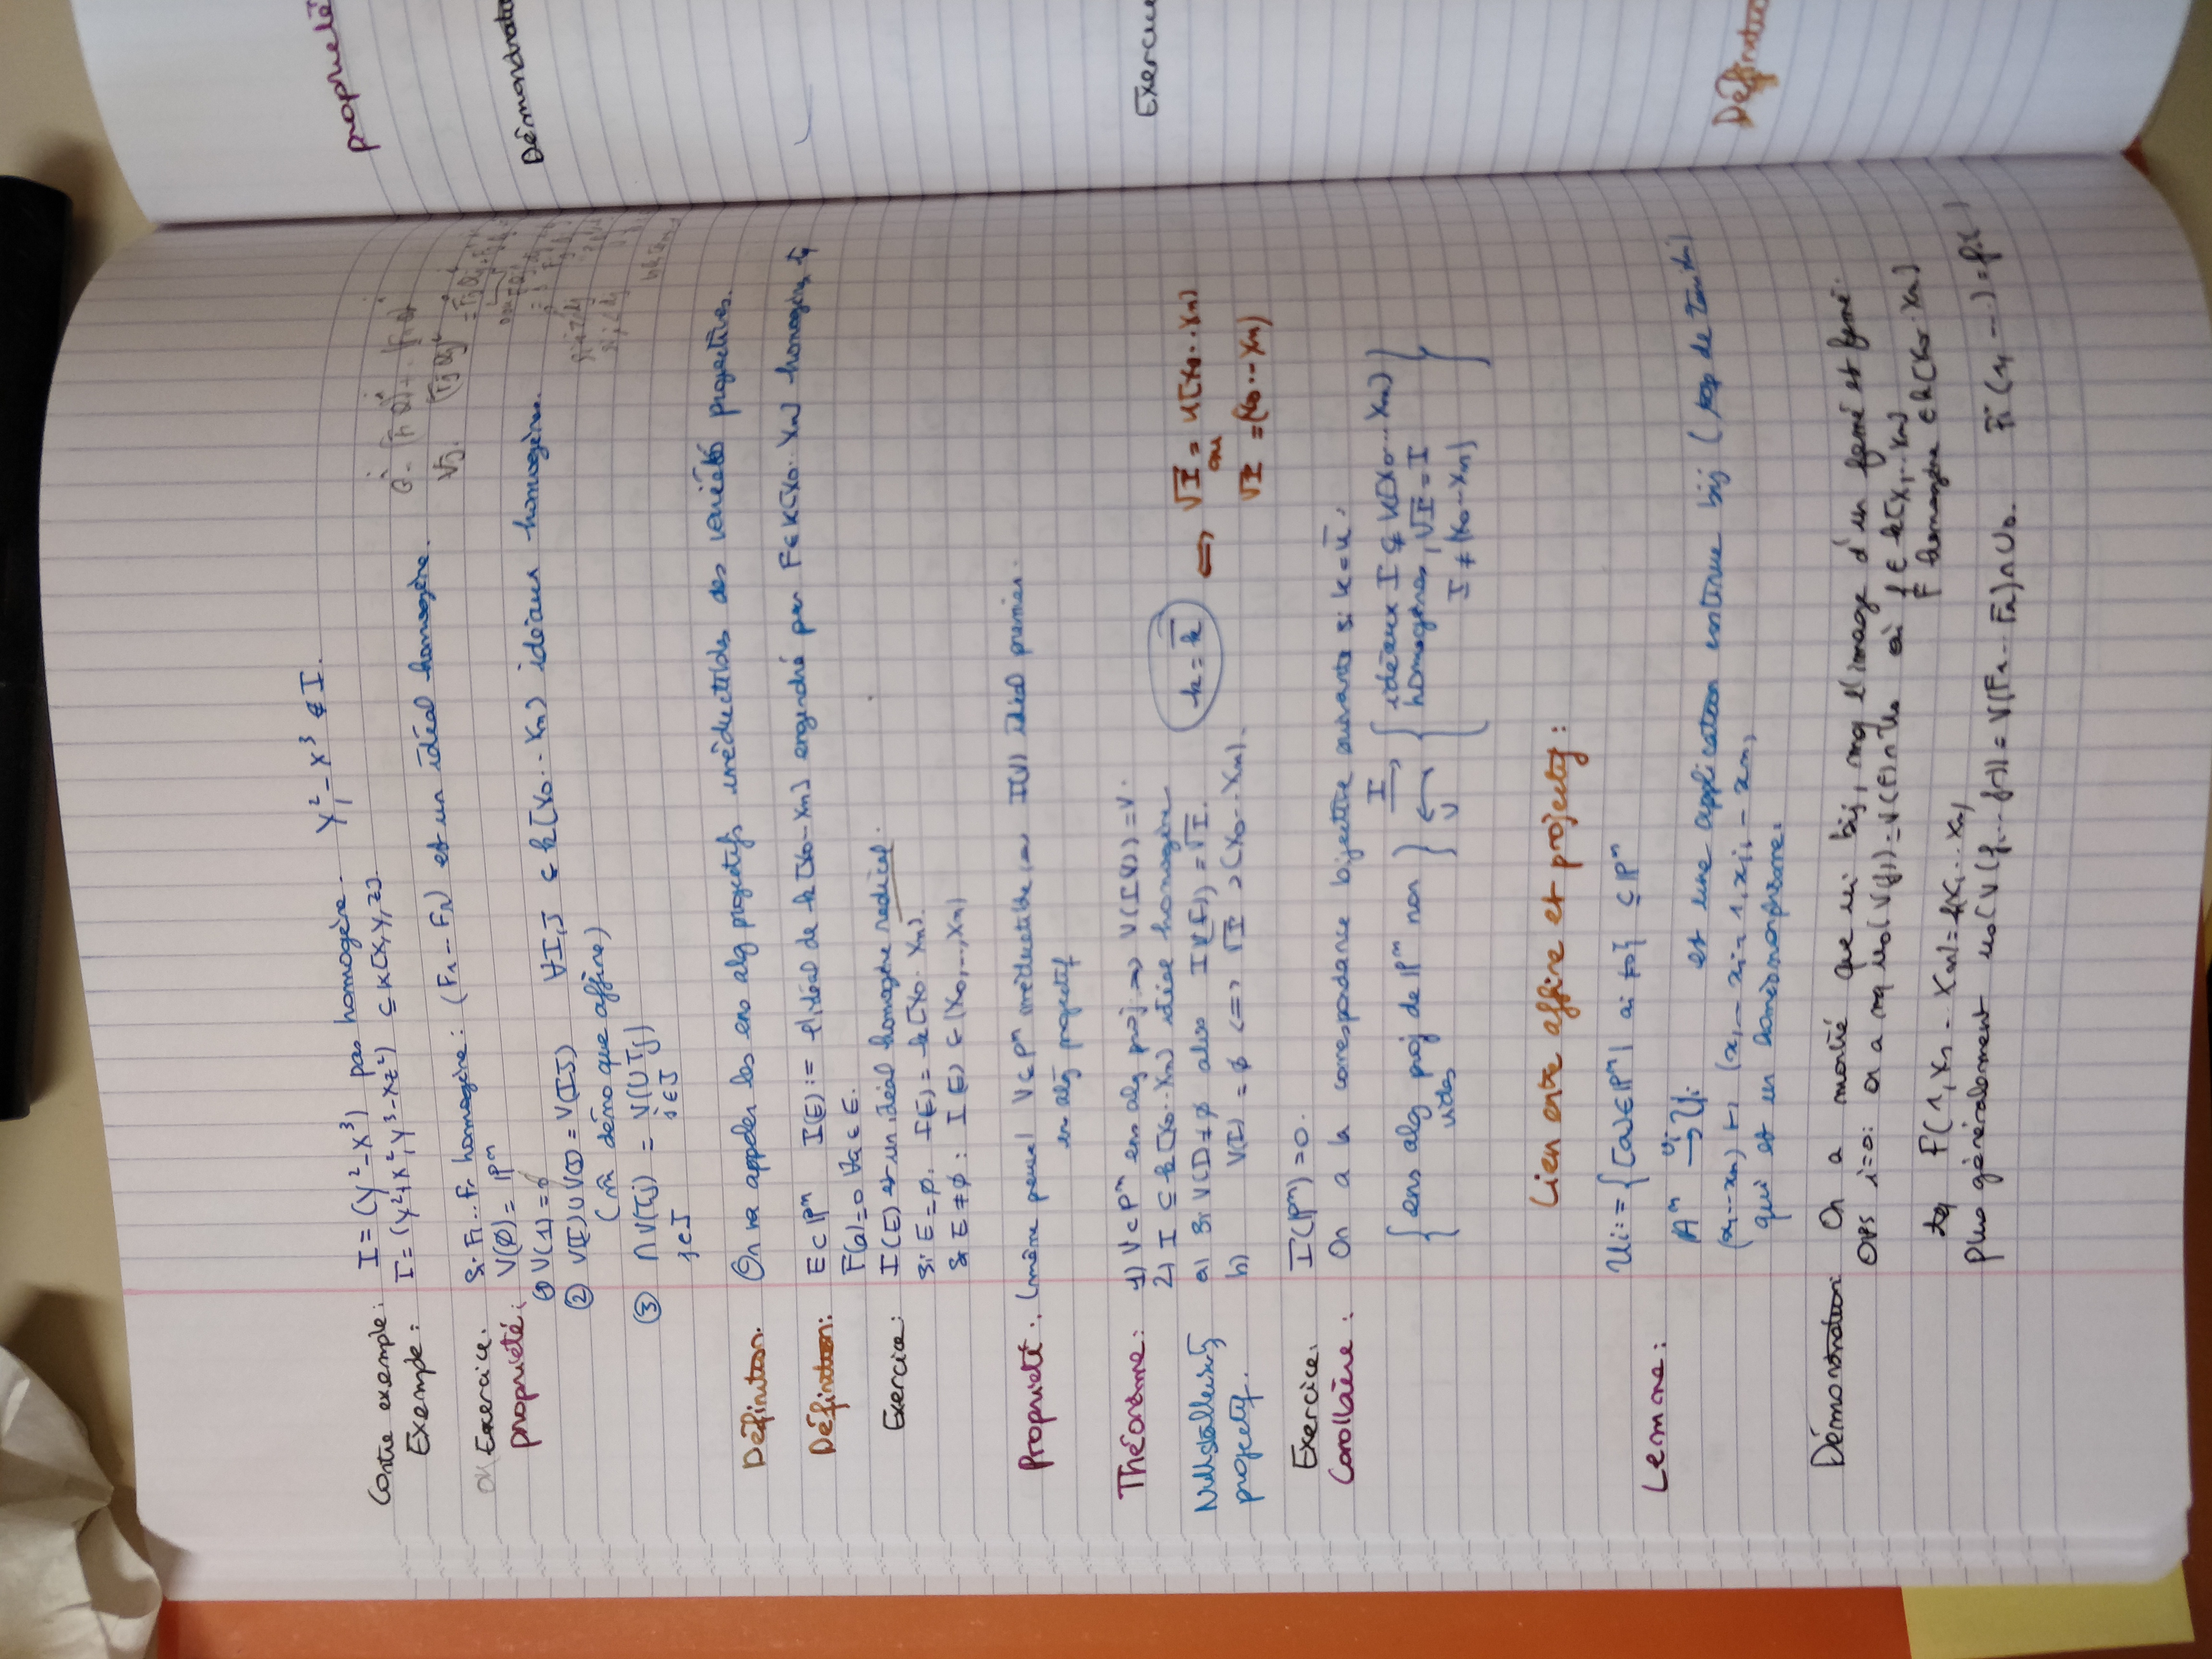 Contre exemple: I = (Y² - X³) pas homogène. Y², - X³ ∉ I.
Exemple: I = (Y²+X², Y³-XZ²) ⊆ K[X,Y,Z].
Exercice. Si F₁..Fr homogène: (F₁ -- Fr) est un idéal homogène.
propriété: V(∅) = ℙⁿ
① V(1) = ∅
② V(I) ∪ V(J) = V(IJ) ∀I,J ⊆ k[X₀...Xn] idéaux homogènes.
(m̂ démo que affine)
③ ∩ V(Tj) = V(∪Tj)
j∈J j∈J
Définition. On va appeler les ens alg projectifs irréductibles des variétés projectives.
Définition: E⊂ℙⁿ I(E) := l'idéal de k[X₀-Xn] engendré par F∈K[X₀..Xn] homogènes tq
F(a)=0 ∀a∈E.
Exercice: I(E) est un idéal homogène radical.
Si E=∅. I(E) = k[X₀..Xn].
Si E≠∅: I(E) ⊆ (X₀,...,Xn)
Propriété: (même preuve) V⊆Pⁿ irréductible <=> I(V) idéal premier.
en alg projectif
Théorème: 1) V⊂Pⁿ ens alg proj => V(I(V))=V.
2) I ⊆ k[X₀..Xn] idéal homogène
Nullstellensatz projectif.
a) Si V(I)≠∅ alors I(V(I)) = √I. k = k̄ <=> √I = K[X₀..Xn]
ou
b) V(I) = ∅ <=> √I ⊃ (X₀...Xn). √I = (X₀...Xn)
Exercice. I(ℙⁿ)=0.
Corollaire: On a la correspondance bijective suivante si k=k̄:
{ens alg proj de ℙⁿ non vides} I → ← V {idéaux I ⊊ K[X₀...Xn]
homogènes, √I = I
I ≠ (X₀-Xn)}
Lien entre affine et projectif:
Ui := {[a]∈ℙⁿ | ai ≠0} ⊆ ℙⁿ
Lemme:
𝔸ⁿ →ui Ui est une application continue bij ( de Zariski)
(x₁--xn) ↦ (x₁ -- xi = 1, xi, -- xn)
qui est un homéomorphisme.
Démonstration: On a montré que ui bij, mq l'image d'un fermé est fermé.
OPS i=0: on a mq u₀(V(f)) = V(F)∩U₀ où f∈k[X₁..Xn]
F homogène ∈k[X₀..Xn]
tq F(1,X₁ -- Xn)=f(X₁..Xn)
Plus généralement u₀(V(f₁...fr)) = V(F₁-- Fr)∩U₀. Fi(1, ...) = fi( )
propriété
Démonstration
Exercice
Définition